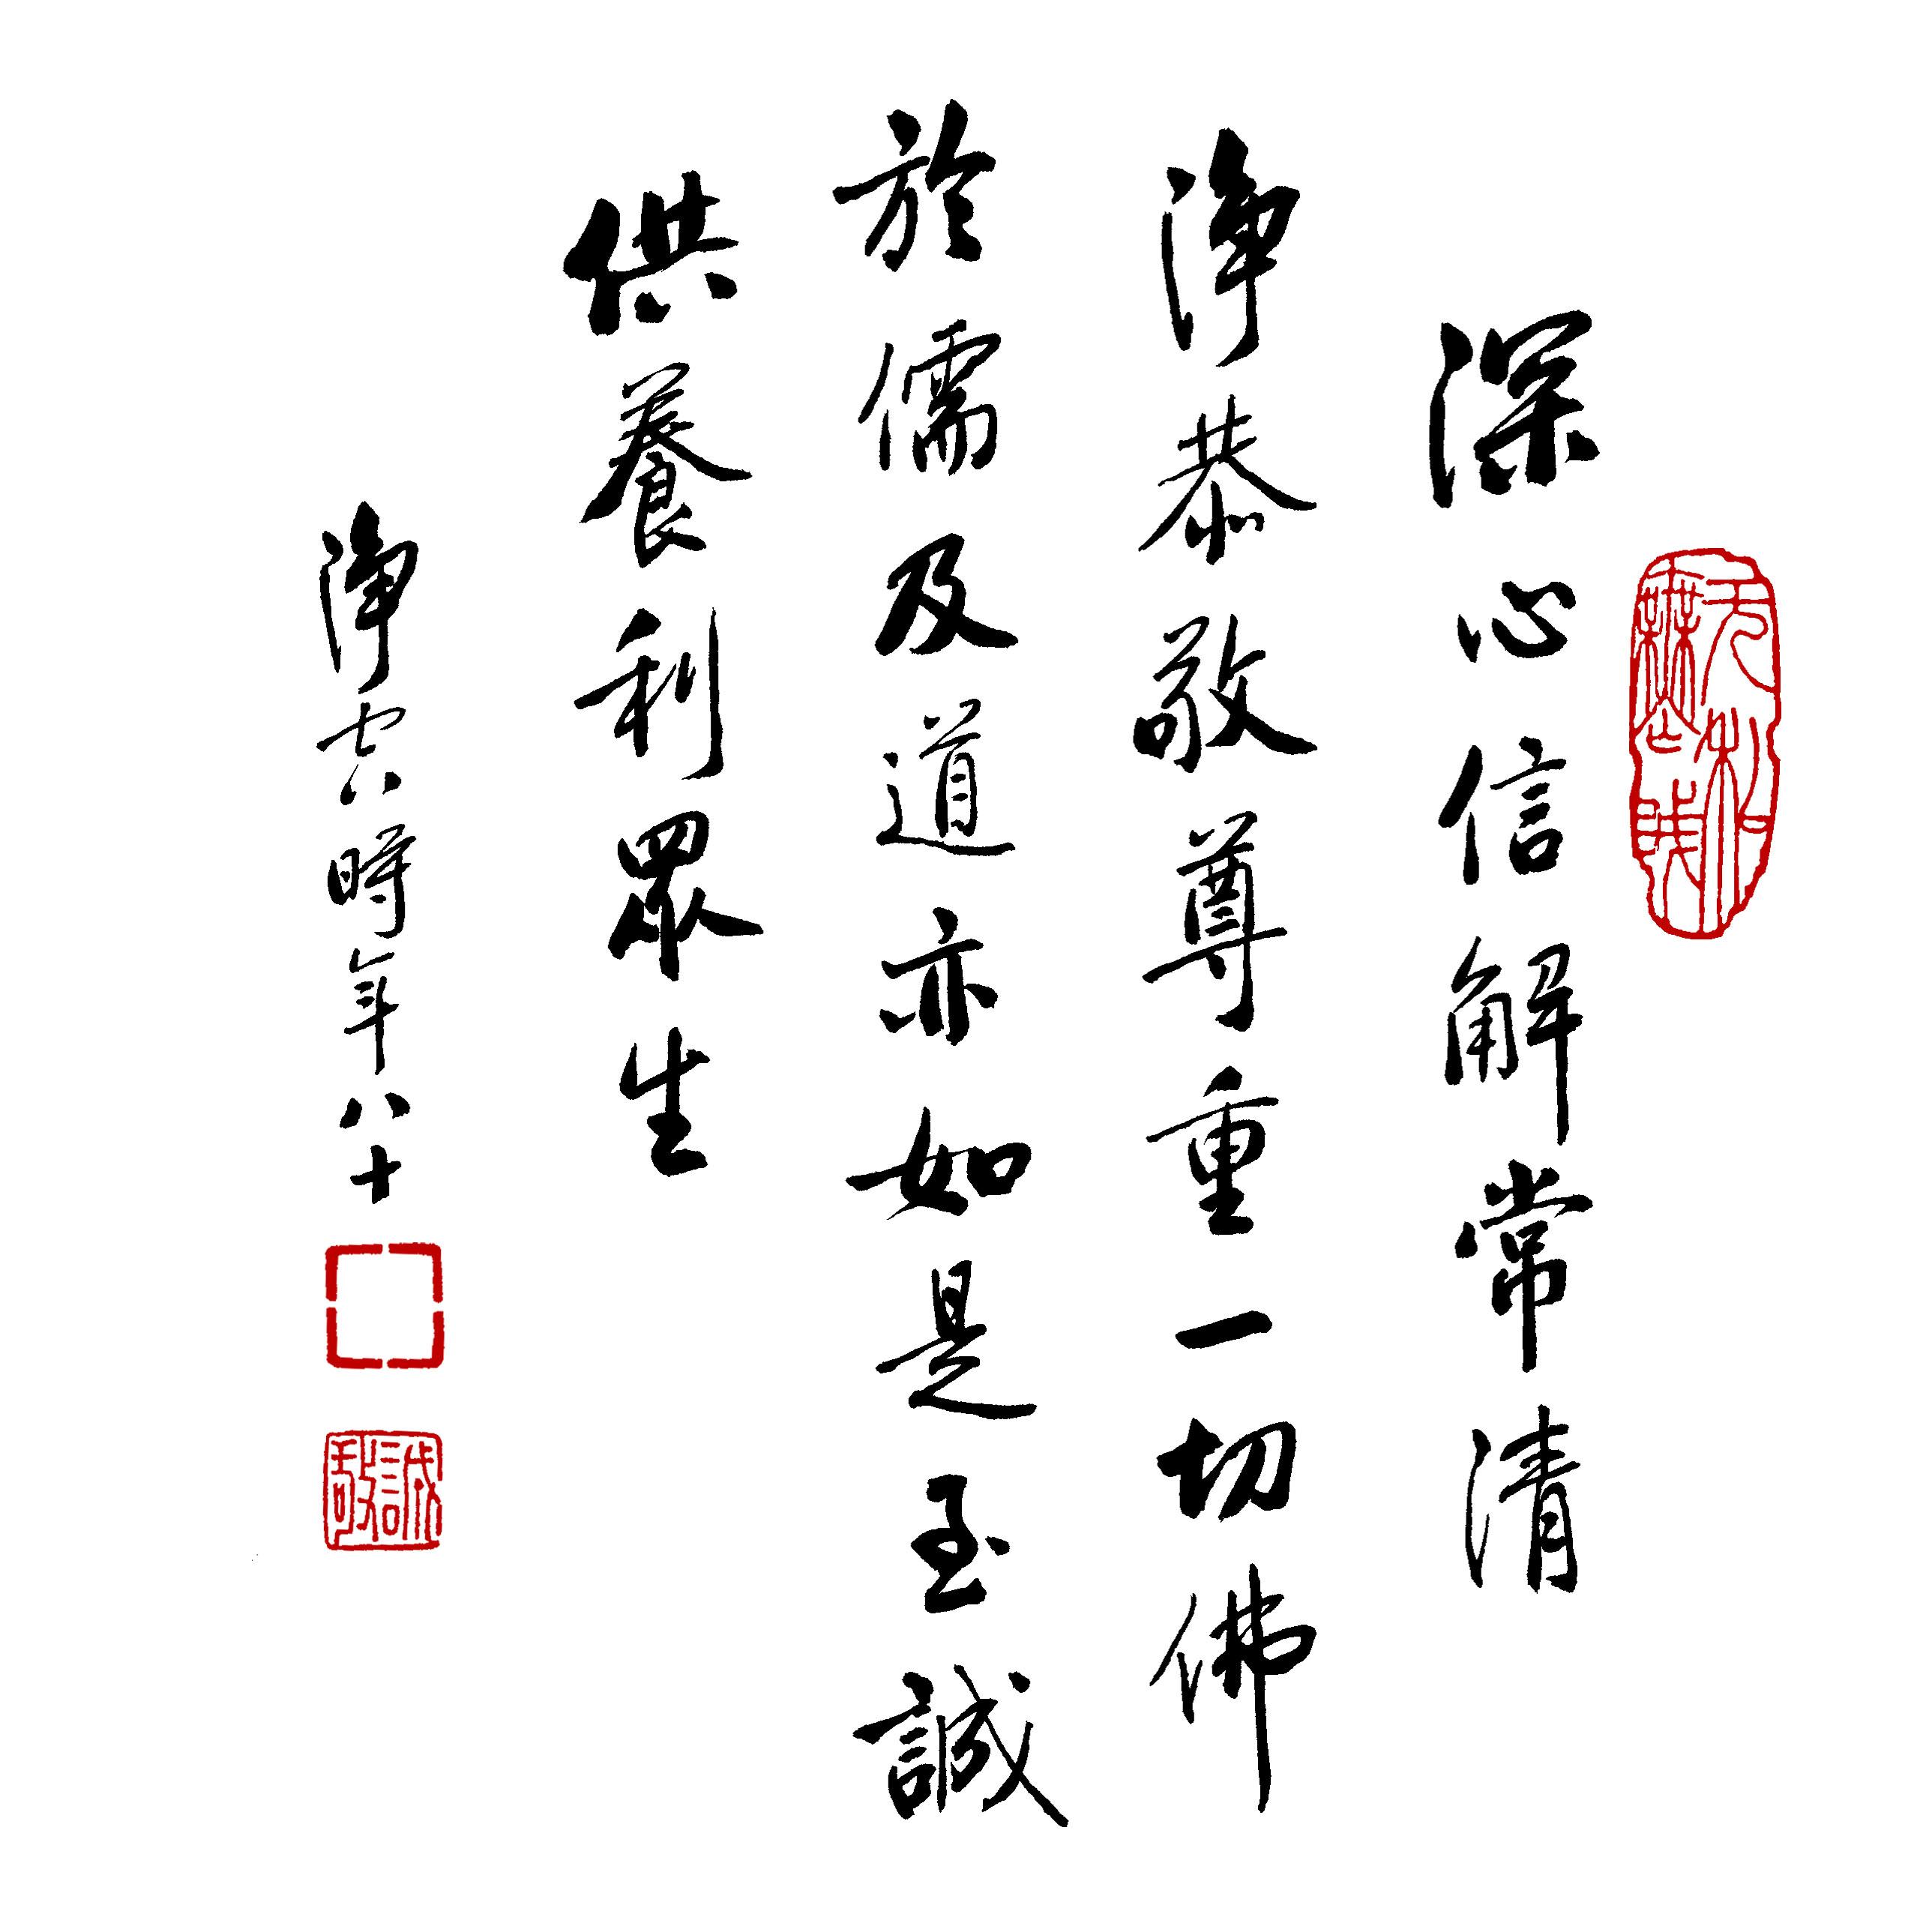 深心信解常清
淨恭敬尊重一切佛
於儒及道亦如是至誠
供養利眾生
淨空時年八十